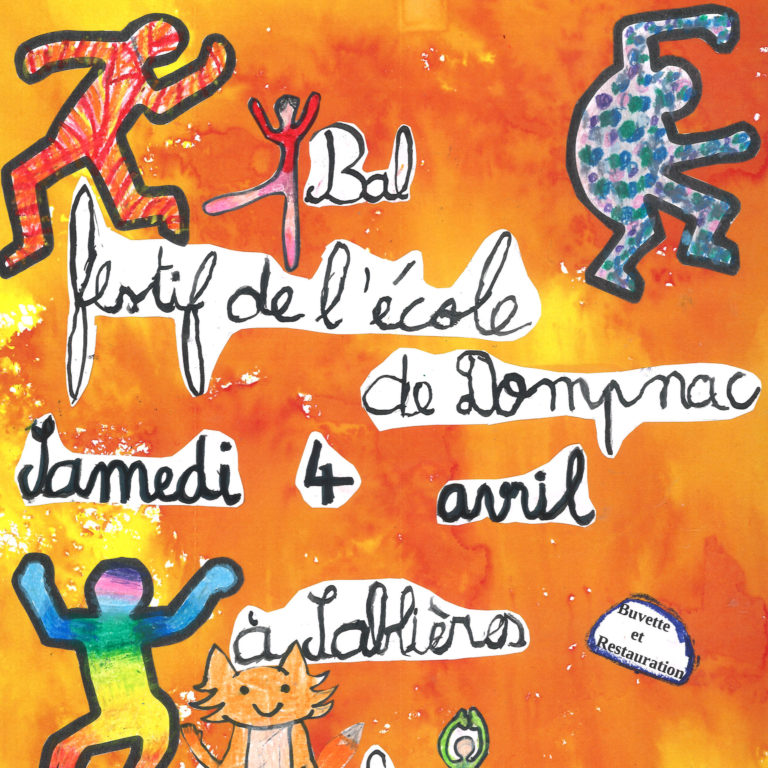 Bal
festif de l'école
de Dompnac
Samedi 4 avril
à Sablières
Buvette
et
Restauration